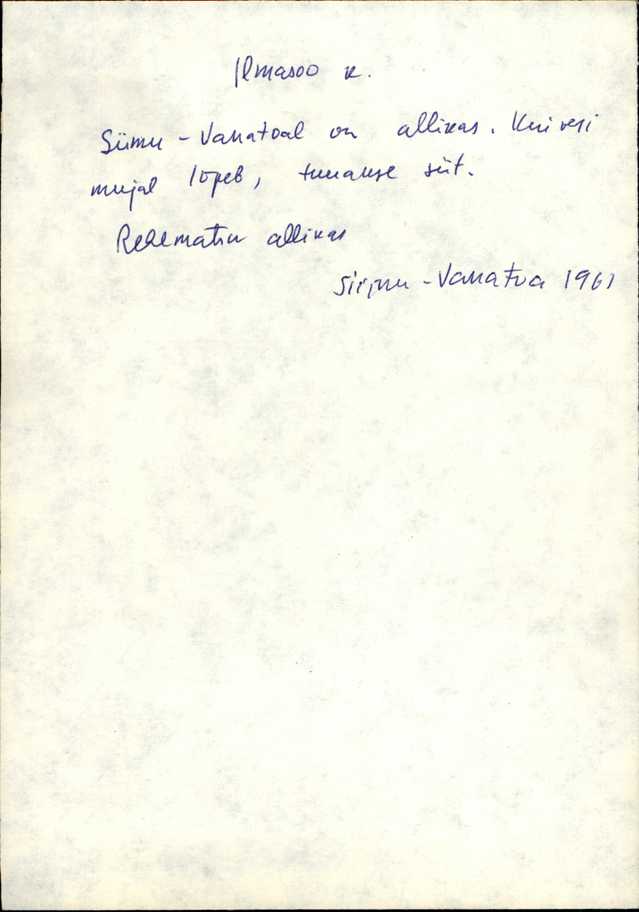 Ilmasoo k.
Siimu - Vanatoal on allikas. Kui vesi
mujal lõpeb, tuuakse siit.
allikas
Siimu - Vanatoa 1961